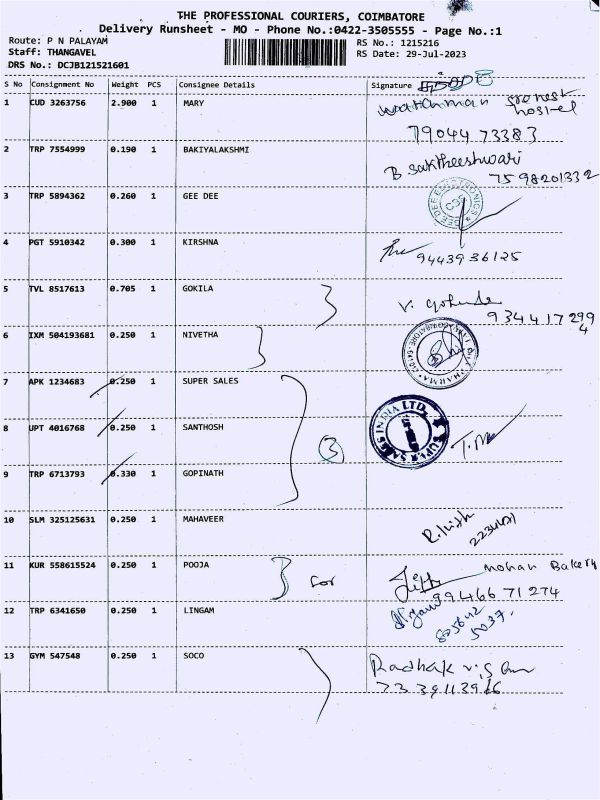 THE PROFESSIONAL COURIERS, COIMBATORE
Delivery Runsheet - MO - Phone No.:0422-3505555 - Page No.:1
Route: P N PALAYAM
RS No.: 1215216
Staff: THANGAVEL
RS Date: 29-Jul-2023
DRS No.: DCJB121521601
S No Consignment No Weight PCS Consignee Details Signature
1 CUD 3263756 2.900 1 MARY watchman
hostel
79044 73383
2 TRP 7554999 0.190 1 BAKIYALAKSHMI B Saktheeshwari
7598201332
3 TRP 5894362 0.260 1 GEE DEE GEE DEE ELECTRONICS CBE
4 PGT 5910342 0.300 1 KIRSHNA 9443936125
5 TVL 8517613 0.705 1 GOKILA V.
934417299
4
6 IXM 504193681 0.250 1 NIVETHA
7 APK 1234683 0.250 1 SUPER SALES
8 UPT 4016768 0.250 1 SANTHOSH 3 SUPER SALES INDIA LTD.
9 TRP 6713793 0.330 1 GOPINATH
10 SLM 325125631 0.250 1 MAHAVEER
11 KUR 558615524 0.250 1 POOJA for Mohan Bakery
9946671274
12 TRP 6341650 0.250 1 LINGAM
13 GYM 547548 0.250 1 SOCO